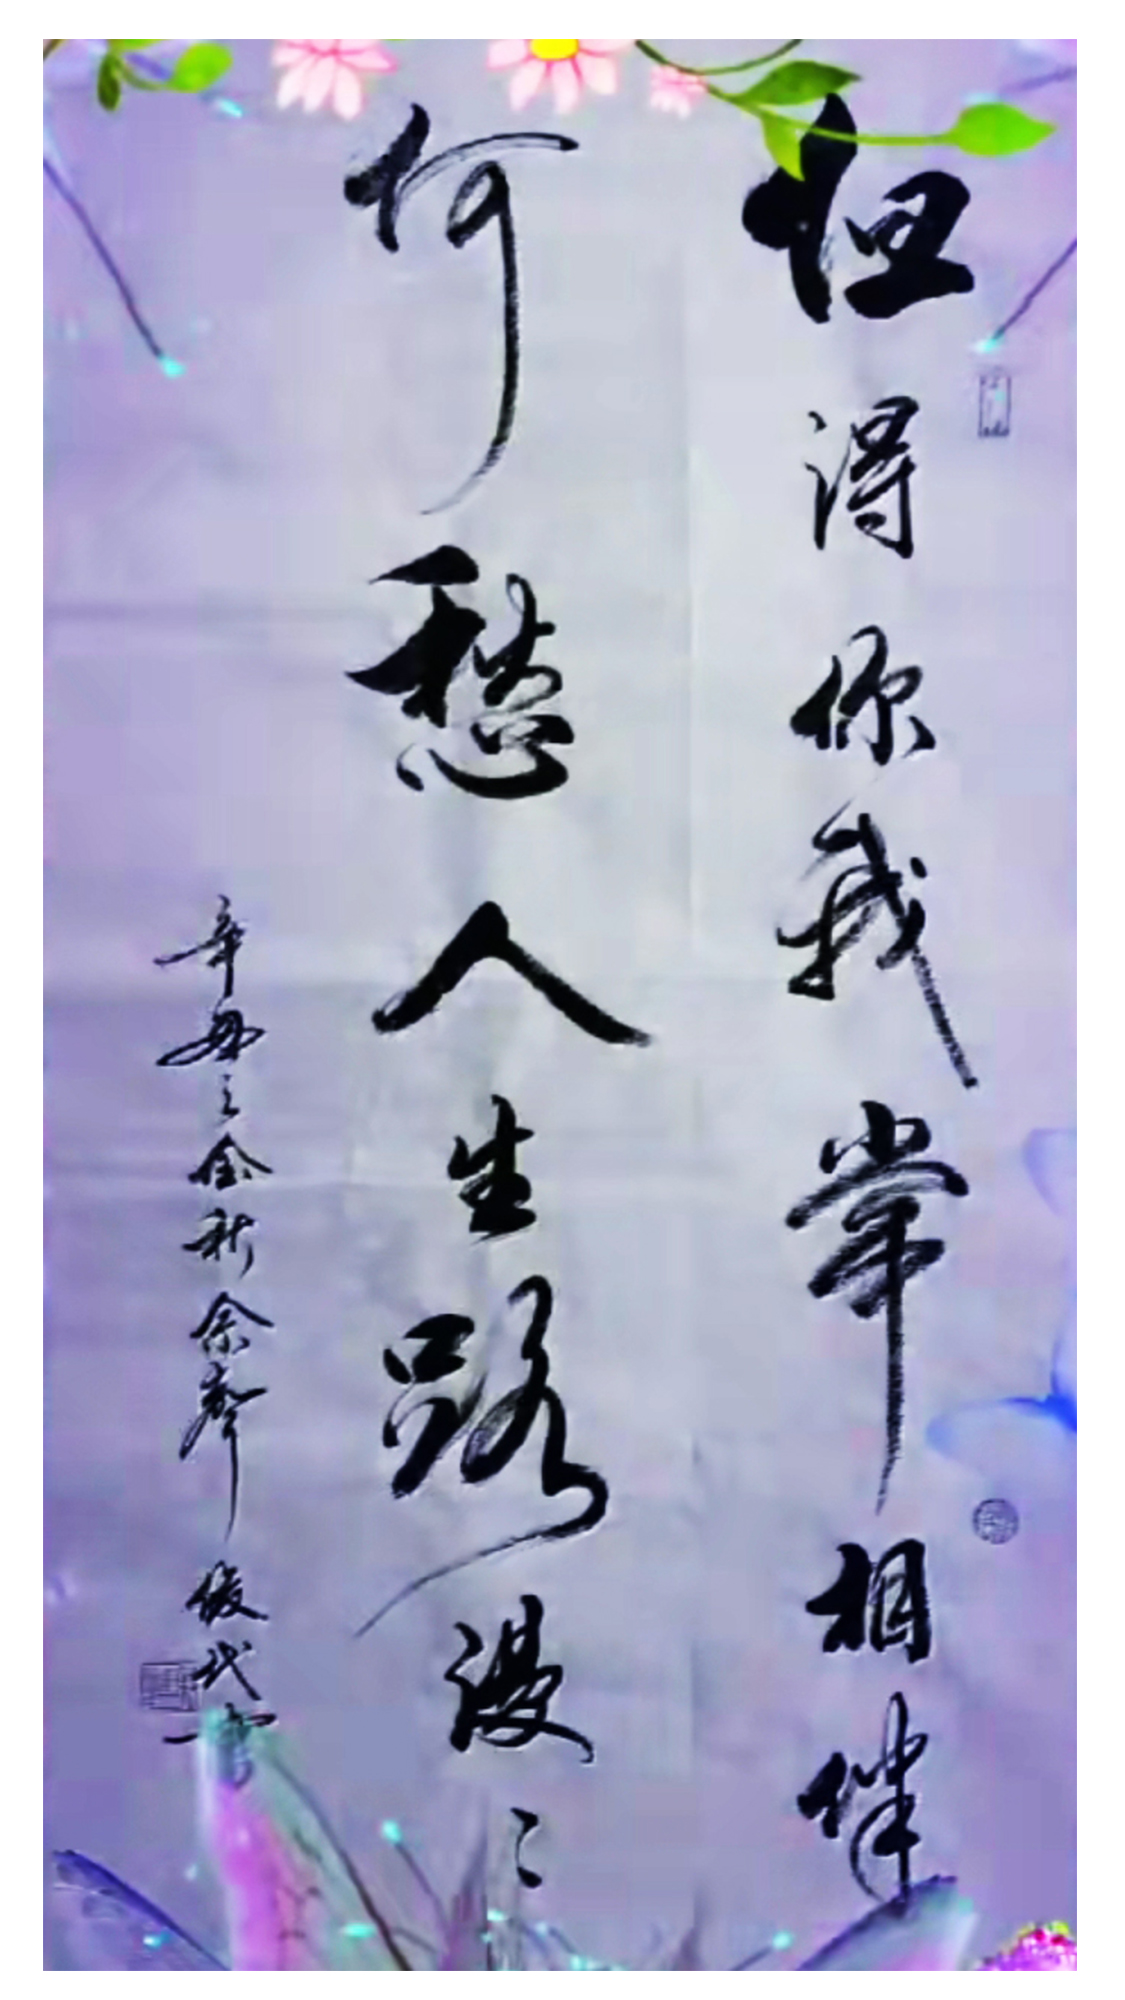 但得你我常相伴
何愁人生路漫々
辛丑之金秋余声俊代书